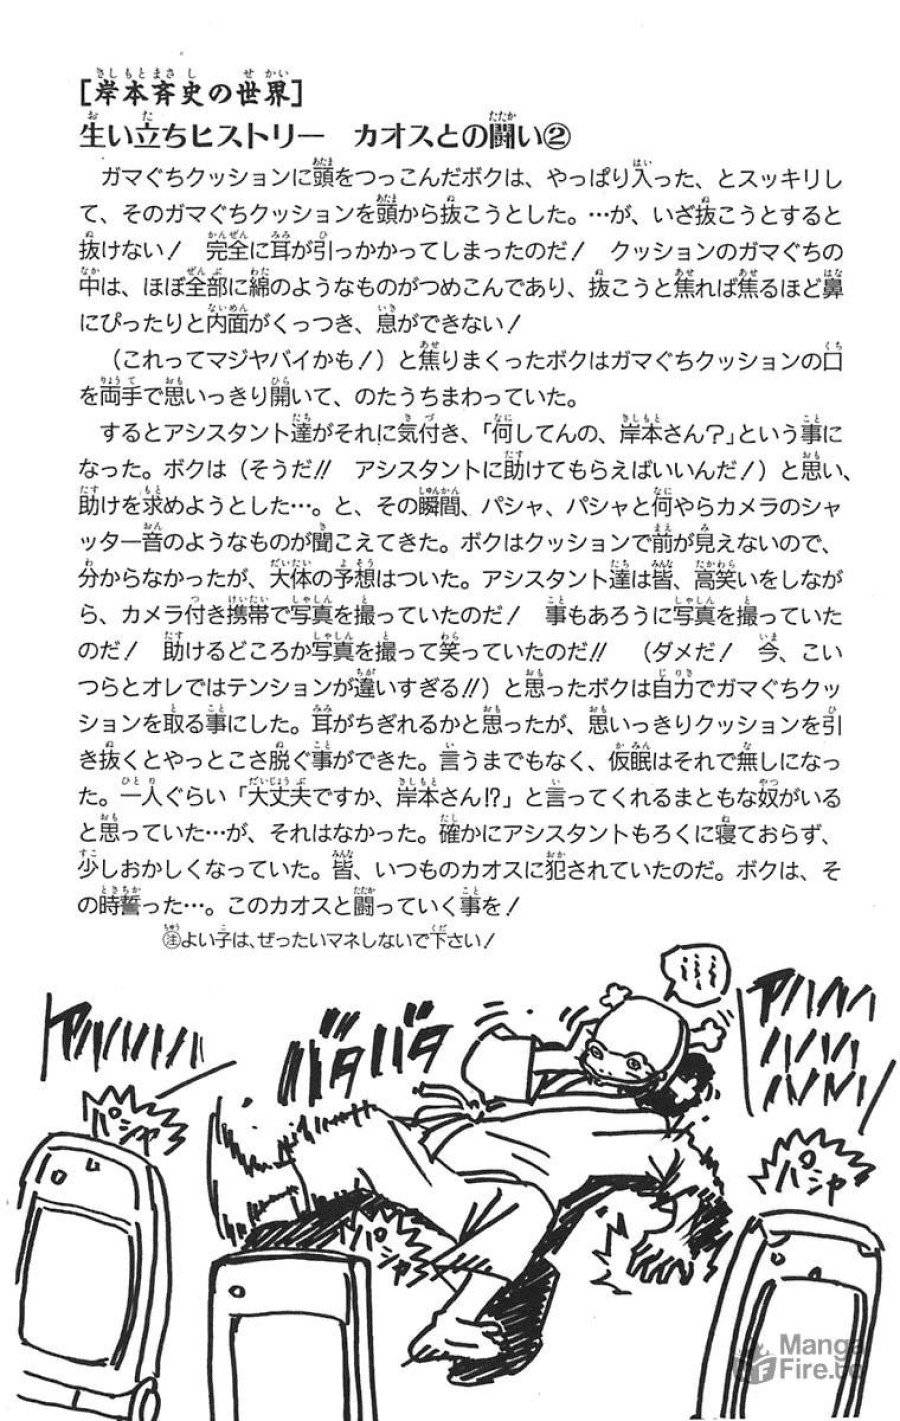 [岸本斉史の世界]
生い立ちヒストリー　カオスとの闘い②
　ガマぐちクッションに頭をつっこんだボクは、やっぱり入った、とスッキリし
て、そのガマぐちクッションを頭から抜こうとした。…が、いざ抜こうとすると
抜けない！　完全に耳が引っかかってしまったのだ！　クッションのガマぐちの
中は、ほぼ全部に綿のようなものがつめこんであり、抜こうと焦れば焦るほど鼻
にぴったりと内面がくっつき、息ができない！
　（これってマジヤバイかも！）と焦りまくったボクはガマぐちクッションの口
を両手で思いっきり開いて、のたうちまわっていた。
　するとアシスタント達がそれに気付き、「何してんの、岸本さん？」という事に
なった。ボクは（そうだ!!　アシスタントに助けてもらえばいいんだ！）と思い、
助けを求めようとした…。と、その瞬間、パシャ、パシャと何やらカメラのシャ
ッター音のようなものが聞こえてきた。ボクはクッションで前が見えないので、
分からなかったが、大体の予想はついた。アシスタント達は皆、高笑いをしなが
ら、カメラ付き携帯で写真を撮っていたのだ！　事もあろうに写真を撮っていた
のだ！　助けるどころか写真を撮って笑っていたのだ!!　（ダメだ！　今、こい
つらとオレではテンションが違いすぎる!!）と思ったボクは自力でガマぐちクッ
ションを取る事にした。耳がちぎれるかと思ったが、思いっきりクッションを引
き抜くとやっとこさ脱ぐ事ができた。言うまでもなく、仮眠はそれで無しになっ
た。一人ぐらい「大丈夫ですか、岸本さん!?」と言ってくれるまともな奴がいる
と思っていた…が、それはなかった。確かにアシスタントもろくに寝ておらず、
少しおかしくなっていた。皆、いつものカオスに犯されていたのだ。ボクは、そ
の時誓った…。このカオスと闘っていく事を！
㊟よい子は、ぜったいマネしないで下さい！
アハハハハハ
バタバタ
!!!!
アハハハ
ハハハハ
ハハハハ
パシャ
パシャ
パシャ
Manga
Fire.to